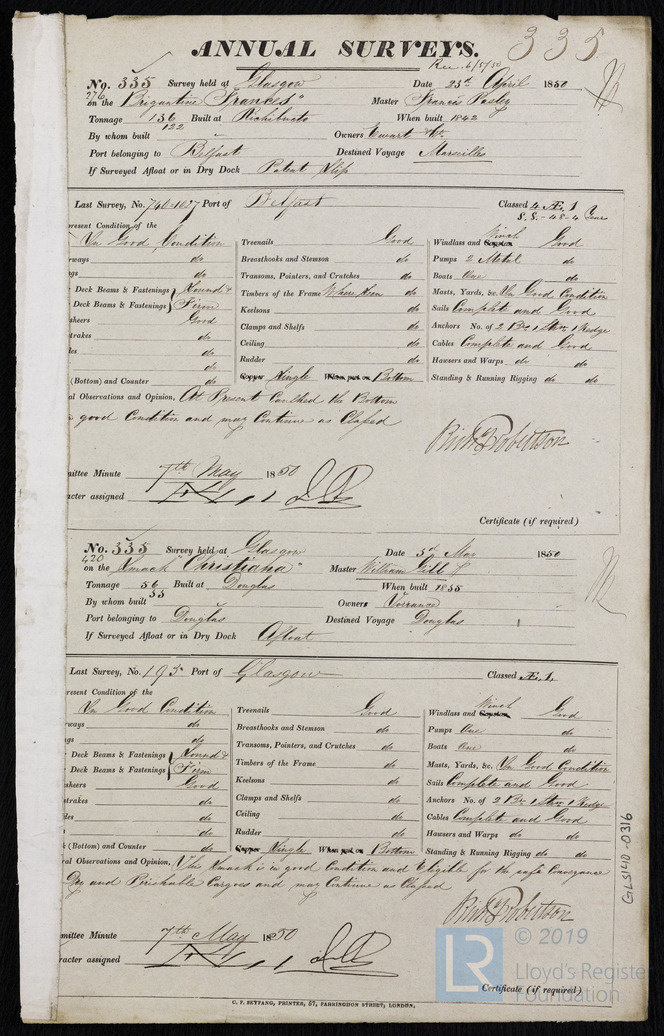 335
ANNUAL SURVEYS.
Rec. 6/5/50
No. 335 Survey held at Glasgow Date 25th April 1850
276
on the Brigantine "Frances" Master Francis Pasley
Tonnage 136 Built at Richibucto When built 1842
122
By whom built Owners Ewart & Co.
Port belonging to Belfast Destined Voyage Marseilles
If Surveyed Afloat or in Dry Dock Patent Slip
Last Survey, No. 740-1027 Port of Belfast Classed 4 Æ 1
S.S.-48-4
present Condition of the
In Good Condition Treenails Good Windlass and Capstan Winch Good
rways do Breasthooks and Stemson do Pumps 2 Metal
ngs do Transoms, Pointers, and Crutches do Boats One
Deck Beams & Fastenings Sound & Timbers of the Frame Where Seen do Masts, Yards, &c. In Good Condition
Deck Beams & Fastenings Firm Keelsons do Sails Complete and Good
sheers Good Clamps and Shelfs do Anchors No. of 2 Br 1 Strm 1 Kedge
trakes do Ceiling do Cables Complete and Good
les do Rudder do Hawsers and Warps do do
(Bottom) and Counter do Copper Single When put on Bottom Standing & Running Rigging do do
al Observations and Opinion, At Present Caulked the Bottom
good Condition and may Continue as Classed
Richd Robertson
mittee Minute 7th May 1850
acter assigned
Certificate (if required)
No. 335 Survey held at Glasgow Date 3d May 1850
420
on the Smack "Christiana" Master William Gill
Tonnage 56 Built at Douglas When built 1835
55
By whom built Owners Torrance
Port belonging to Douglas Destined Voyage Douglas
If Surveyed Afloat or in Dry Dock Afloat
Last Survey, No. 195 Port of Glasgow Classed Æ 1
resent Condition of the
In Good Condition Treenails Good Windlass and Capstan Winch Good
rways do Breasthooks and Stemson do Pumps One
ngs do Transoms, Pointers, and Crutches do Boats One
Deck Beams & Fastenings Sound & Timbers of the Frame do Masts, Yards, &c. In Good Condition
Deck Beams & Fastenings Firm Keelsons do Sails Complete and Good
sheers Good Clamps and Shelfs do Anchors No. of 2 Br 1 Strm 1 Kedge
strakes do Ceiling do Cables Complete and Good
les do Rudder do Hawsers and Warps do do
k (Bottom) and Counter do Copper Single When put on Bottom Standing & Running Rigging do do
al Observations and Opinion, This Smack is in good Condition and Eligible for the safe Conveyance
Dry and Perishable Cargoes and may Continue as Classed
Richd Robertson
mmittee Minute 7th May 1850
racter assigned
Certificate (if required)
C. F. SEYFANG, PRINTER, 57, FARRINGDON STREET, LONDON.
GLS140-0316
LR
© 2019
Lloyd's Register
Foundation